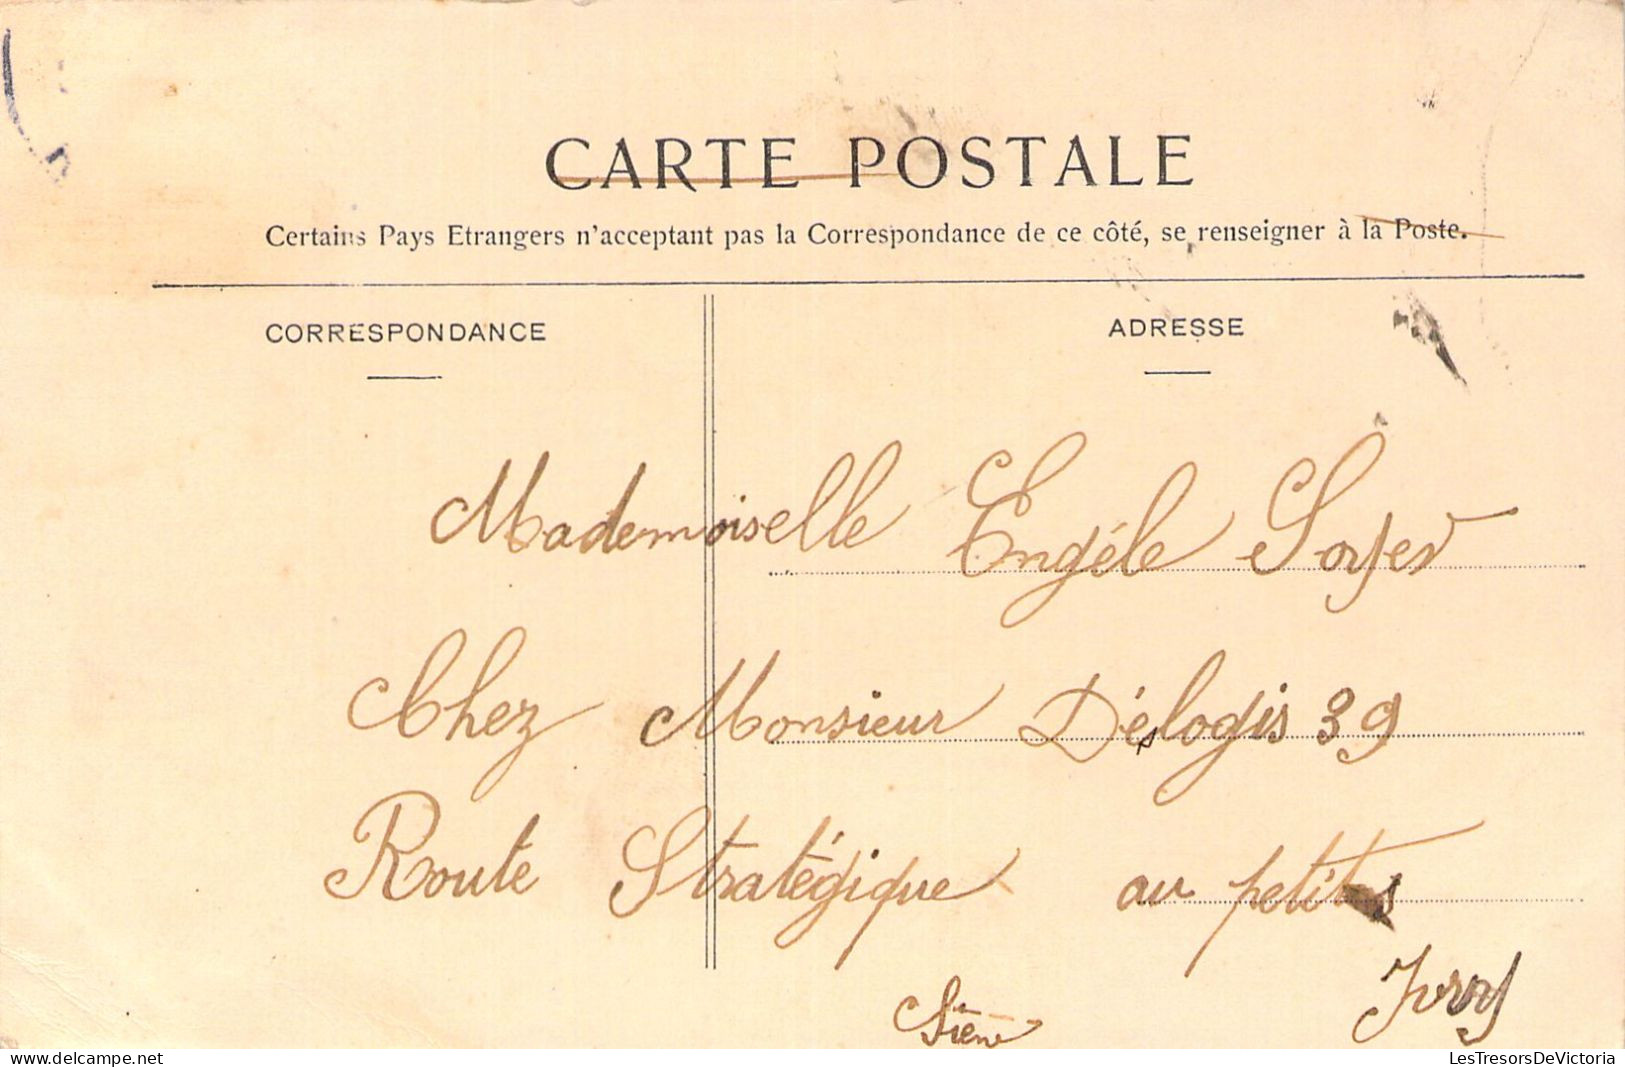 CARTE POSTALE
Certains Pays Etrangers n'acceptant pas la Correspondance de ce côté, se renseigner à la Poste.
CORRESPONDANCE
ADRESSE
Mademoiselle Engéle
Chez Monsieur Délogis 39
Route Stratégique au petit
Ivry
LesTresorsDeVictoria